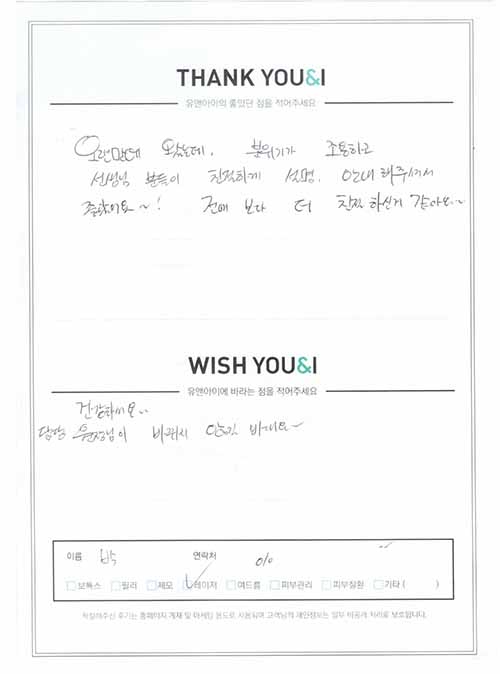 THANK YOU&I
유앤아이의 좋았던 점을 적어주세요
오랜만에 왔는데, 분위기가 조용하고
선생님 분들이 친절하게 설명, 안내 해주셔서
좋았어요~! 전에 보다 더 친절 하신거 같아요~
WISH YOU&I
유앤아이에 바라는 점을 적어주세요
건강하세요~
담당 원장님이 바뀌시 않길 바래요~
이름 박 연락처 010
보톡스 필러 제모 레이저 여드름 피부관리 피부질환 기타 ( )
작성해주신 후기는 홈페이지 게재 및 마케팅 용도로 사용되며 고객님의 개인정보는 일부 비공개 처리로 보호됩니다.